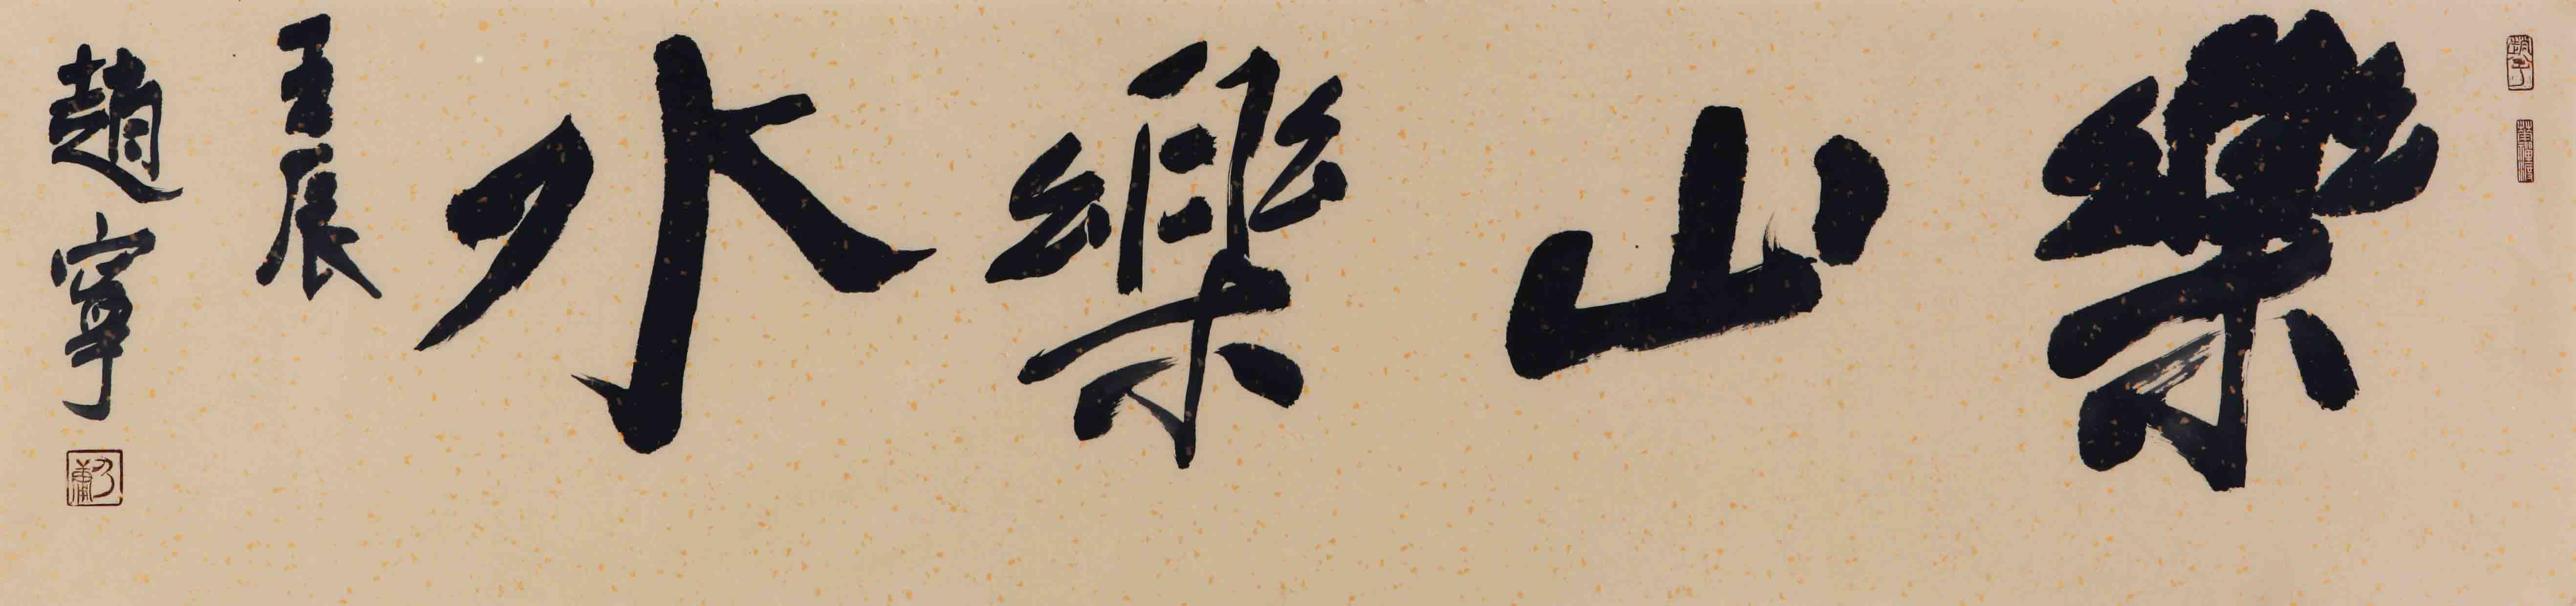 樂山樂水
壬辰
趙寧